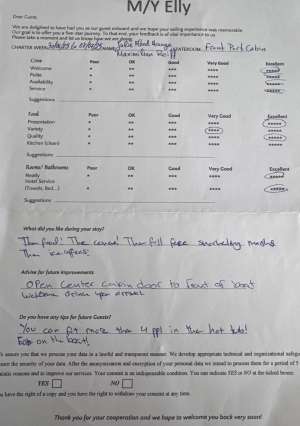 M/Y Elly
Dear Guest,
We are delighted to have had you as our guest onboard and we hope your sailing experience was memorable.
Our goal is to offer you a five star journey. To that end, your feedback is of vital importance to us.
Please take a moment and let us know how we are doing
CHARTER WEEK: STATEROOM: Front Port Cabin
Crew Poor OK Good Very Good Excellent
Welcome * ** *** **** *****
Polite * ** *** **** *****
Availability * ** *** **** *****
Service * ** *** **** *****
Suggestions
Food Poor OK Good Very Good Excellent
Presentation * ** *** **** *****
Variety * ** *** **** *****
Quality * ** *** **** *****
Kitchen
Suggestions
Rooms/ Bathrooms Poor OK Good Very Good Excellent
Ready * ** *** **** *****
Hotel Service
(Towels, Bed...) * ** *** **** *****
Suggestions
What did you like during your stay?
The food! The crew! The
The
Advise for future improvements
Open center cabin door to front of boat
Welcome drink upon arrival
Do you have any tips for future Guests?
You can fit more than 4 ppl in the hot tub!
on the boat!
assure you that we process your data in a lawful and transparent manner. We develop appropriate technical and organizational
sure the security of your data. After the anonymization and encryption of your personal data we intend to process them for a period of 5
reasons and to improve our services. Your consent is an indispensable condition. You can indicate YES or NO at the behind boxes.
YES NO
have the right of a copy and you have the right to withdraw your consent at any time.
Thank you for your cooperation and we hope to welcome you back very soon!